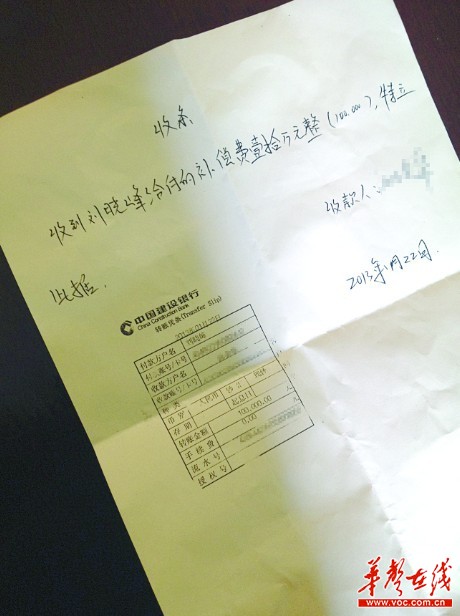 收条
收到刘晓峰给付的补偿费壹拾万元整(100.000),特立
此据.
收款人:
2013年1月22日.
中国建设银行
China Construction Bank
转账凭条(Transfer Slip)
2013年01月22日
付款方户名
付款账号/卡号
收款方户名
收款账号/卡号
种类
币种 人民币
存期
转账金额 100,000.00
手续费 0.00
流水号
授权号
华声在线
www.voc.com.cn